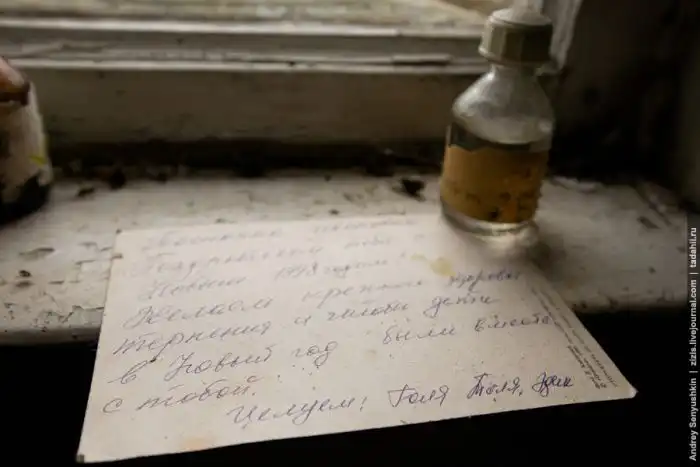 Поздравляем тебя с
Новым 1998 годом!
Желаем крепкого здоровья
терпения и чтобы дети
в Новый год были вместе
с тобой.
Целуем! Галя Толя, Эдик
Andrey Senyushkin | zizis.livejournal.com | tadahil.ru